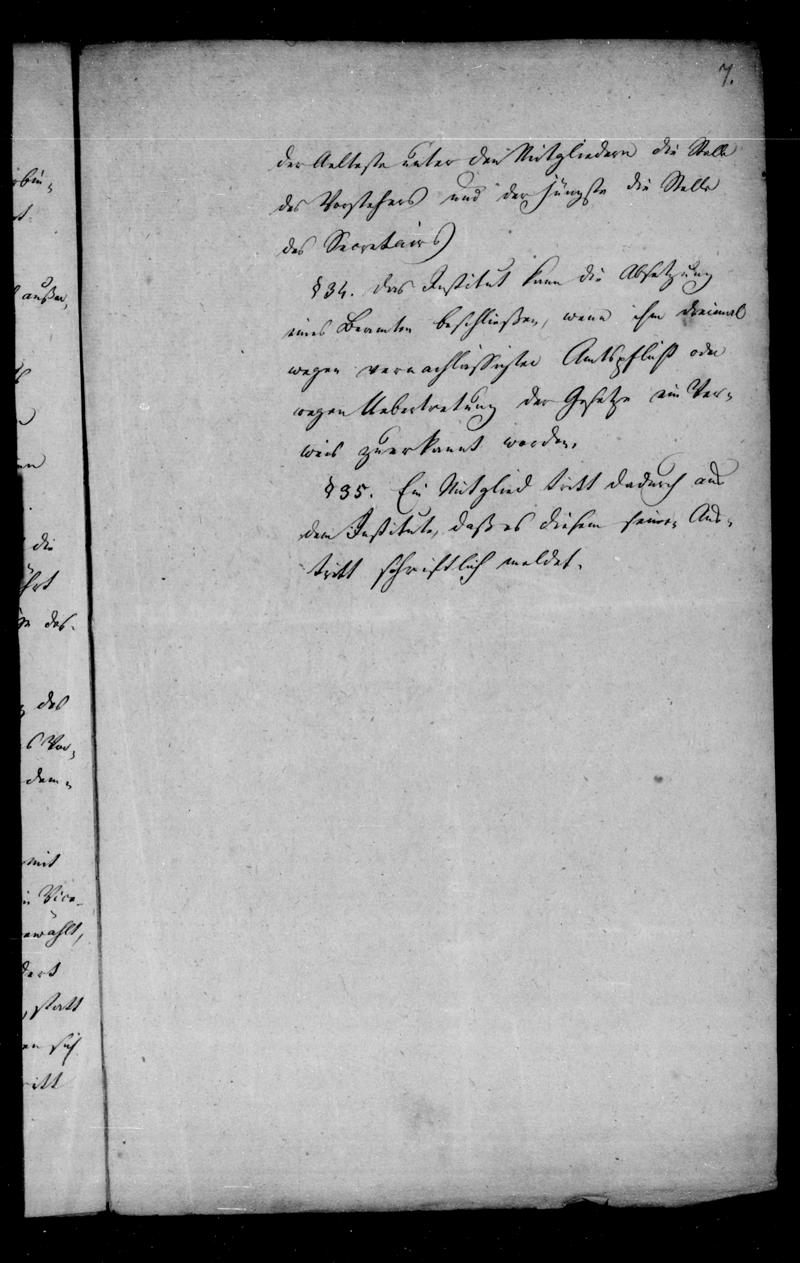 7.
der Aelteste unter den Mitgliedern die Stelle
des Vorstehers und der jüngste die Stelle
des Secretairs)
§ 34. Das Institut kann die Absetzung
eines Beamten beschließen, wenn ihm dreimal
wegen vernachlässigter Amtspflicht oder
wegen Uebertretung der Gesetze ein Ver-
weis zuerkannt worden.
§ 35. Ein Mitglied tritt dadurch aus
dem Institute, daß es diesem seinen Aus-
tritt schriftlich meldet.
außer,
die
des-
des
Vor-
dem-
mit
Vice-
statt
sich